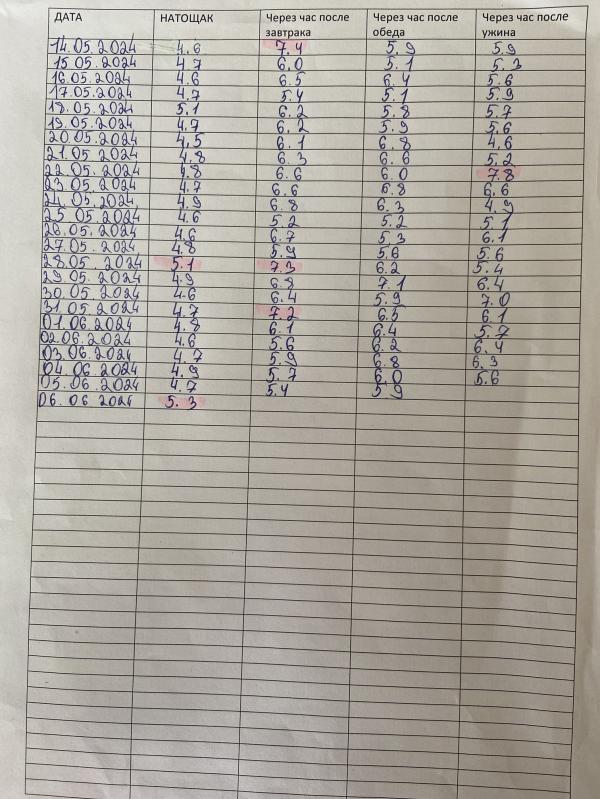 ДАТА НАТОЩАК Через час после завтрака Через час после обеда Через час после ужина
14.05.2024 4.6 7.4 5.9 5.9
15.05.2024 4.7 6.0 5.1 5.3
16.05.2024 4.6 6.5 6.4 5.6
17.05.2024 4.7 5.4 5.1 5.9
18.05.2024 5.1 6.2 5.8 5.7
19.05.2024 4.7 6.2 5.9 5.6
20.05.2024 4.5 6.1 6.8 4.6
21.05.2024 4.8 6.3 6.6 5.2
22.05.2024 4.8 6.6 6.0 7.8
23.05.2024 4.7 6.6 6.8 6.6
24.05.2024 4.9 6.8 6.3 4.9
25.05.2024 4.6 5.2 5.2 5.1
26.05.2024 4.6 6.7 5.3 6.1
27.05.2024 4.8 5.9 5.6 5.6
28.05.2024 5.1 7.3 6.2 5.4
29.05.2024 4.9 6.8 7.1 6.4
30.05.2024 4.6 6.4 5.9 7.0
31.05.2024 4.7 7.2 6.5 6.1
01.06.2024 4.8 6.1 6.4 5.7
02.06.2024 4.6 5.6 6.2 6.4
03.06.2024 4.7 5.9 6.8 6.3
04.06.2024 4.9 5.7 6.0 5.6
05.06.2024 4.7 5.4 5.9
06.06 2024 5.3